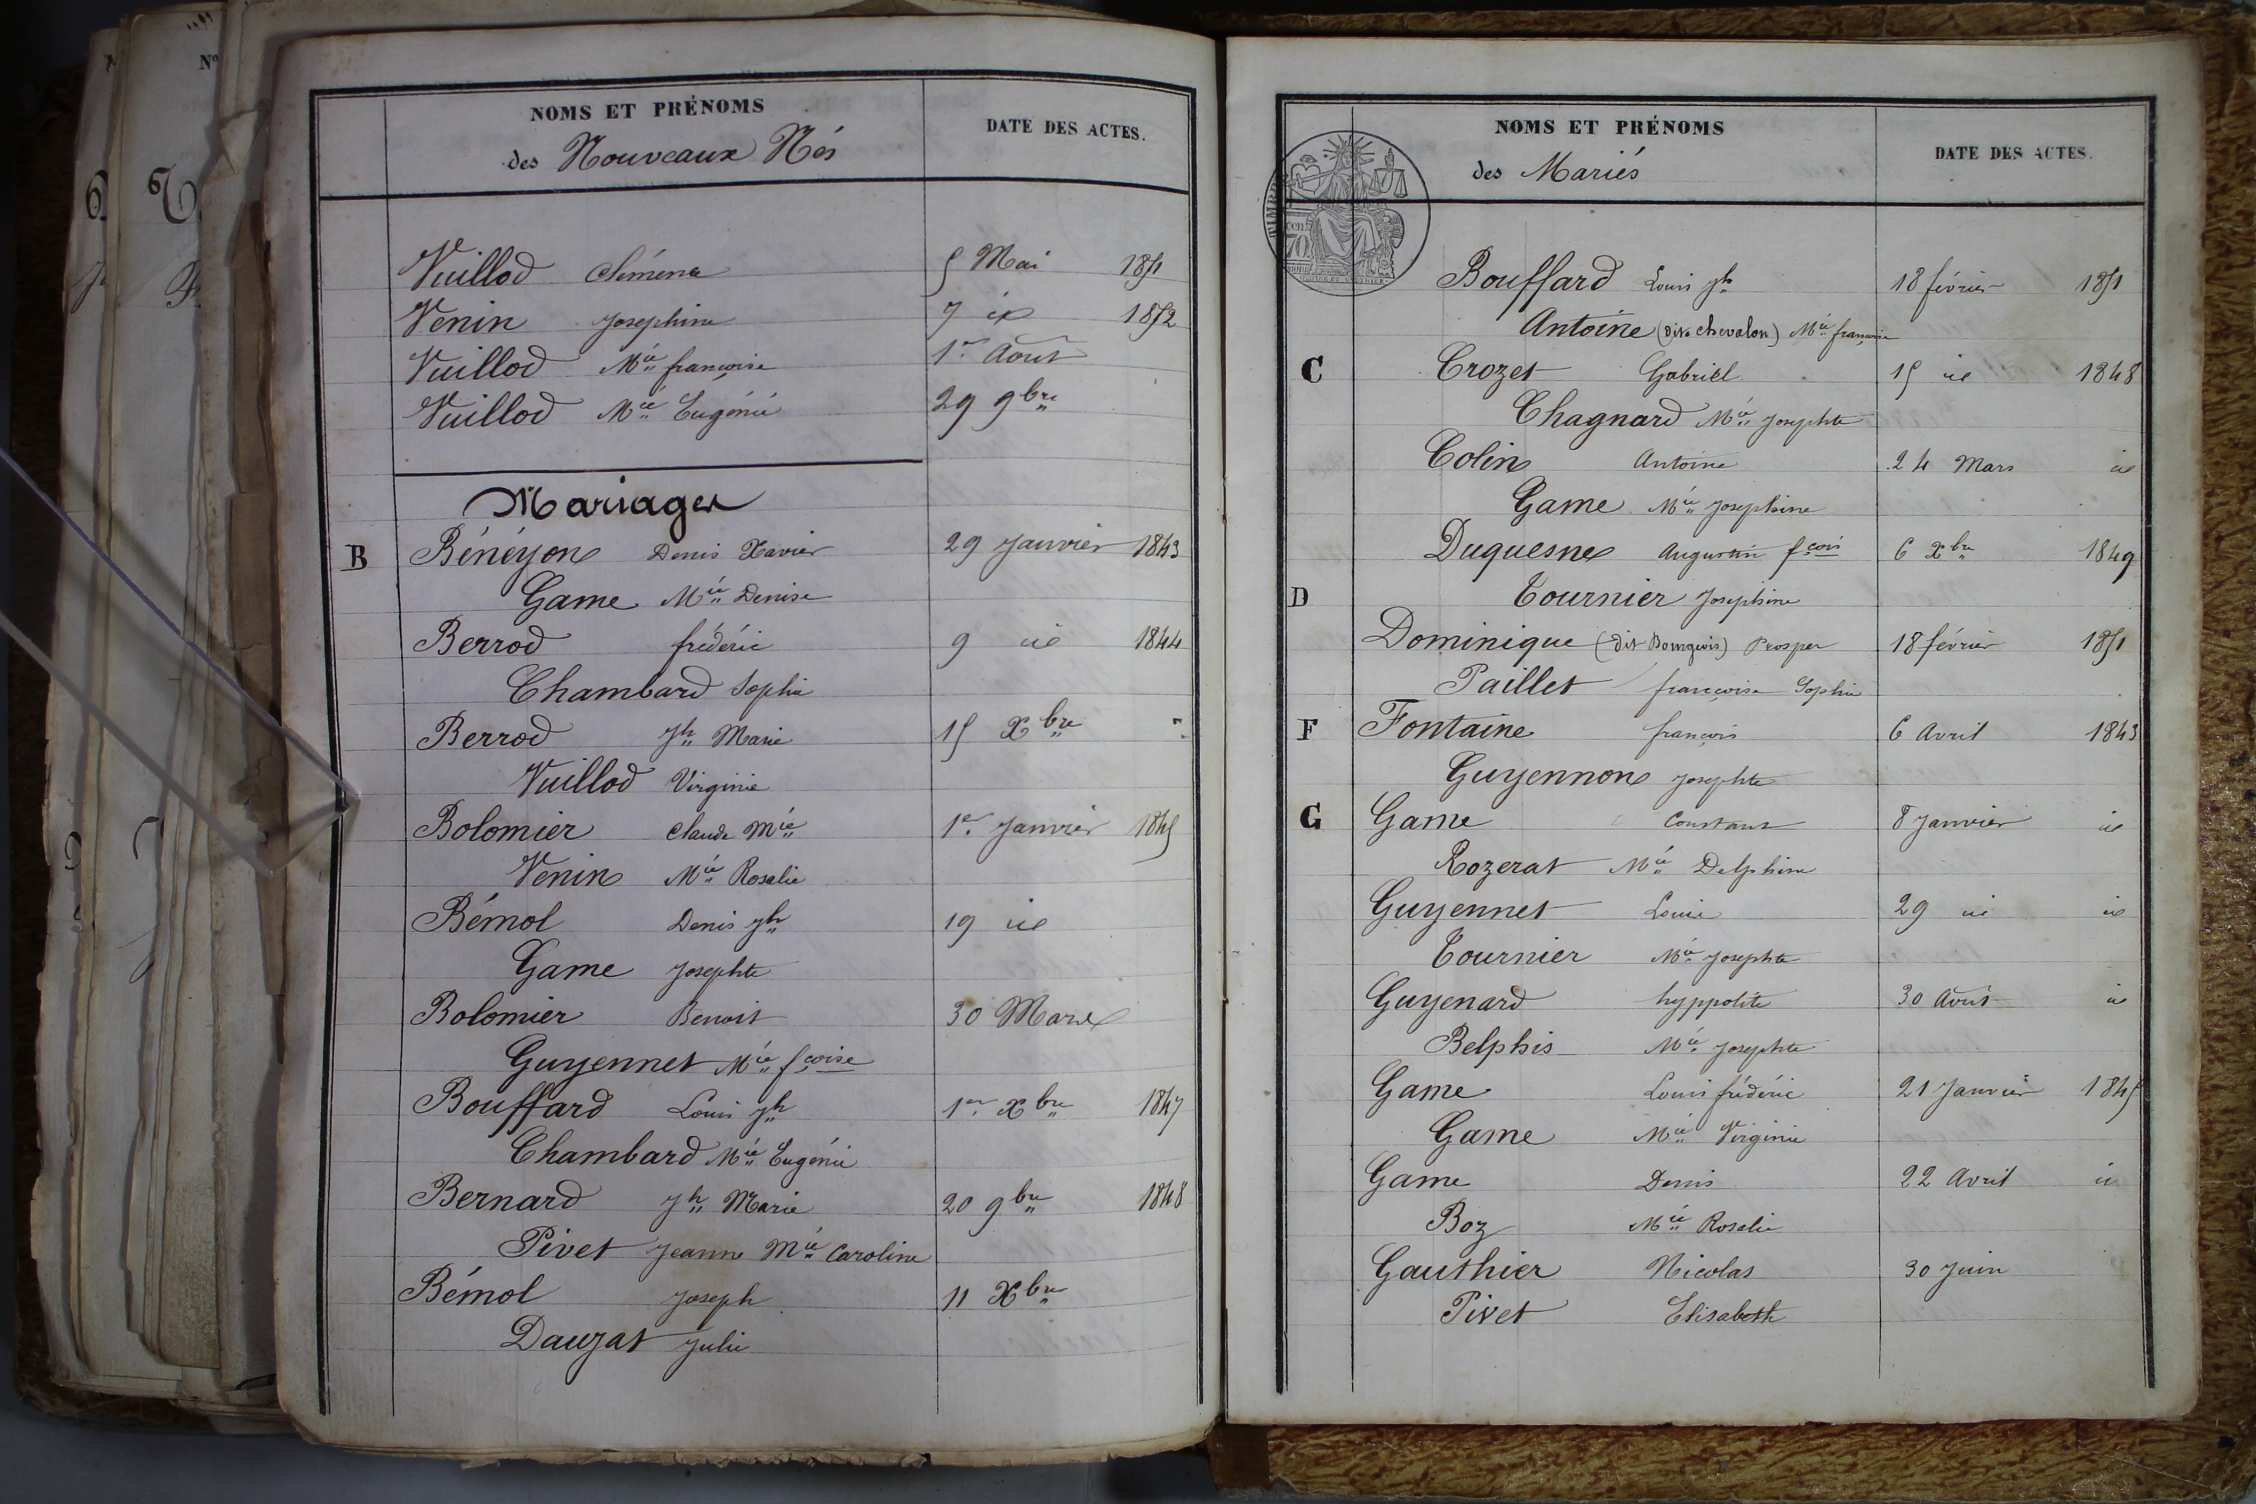 NOMS ET PRÉNOMS
des Nouveaux Nés
DATE DES ACTES.
Vuillod 5 Mai 1851
Venin Josephine 7 1852
Vuillod Mie françoise 1er Août
Vuillod Mie Eugénie 29 9bre
Mariages
B Bénéyon Denis Xavier 29 Janvier 1843
Game Mie Denise
Berrod frédéric 9 id 1844
Chambard Sophie
Berrod Jh Marie 15 Xbre "
Vuillod Virginie
Bolomier Claude Mie 1er Janvier 1845
Venin Mie Rosalie
Bémol Denis Jh 19 id
Game Josephte
Bolomier Benoit 30 Mars
Guyennet Mie fçoise
Bouffard Louis Jh 1er Xbre 1847
Chambard Mie Eugénie
Bernard Jh Marie 20 9bre 1848
Pivet Jeanne Mie Caroline
Bémol Joseph 11 Xbre
Dauzat Julie
NOMS ET PRÉNOMS
des Mariés
DATE DES ACTES.
Bouffard Louis Jh 18 février 1851
Antoine (dite chevalon) Mie françoise
C Crozet Gabriel 15 id 1848
Chagnard Mie Josephte
Colin Antoine 24 Mars id
Game Mie Josephine
Duquesne Augustin fçois 6 Xbre 1849
D Tournier Josephine
Dominique (dit Bourgeois) Prosper 18 février 1851
Paillet françoise Sophie
F Fontaine françois 6 Avril 1843
Guyennon Josephte
G Game Constant 8 Janvier id
Rozerat Mie Delphine
Guyennet Louis 29 id id
Tournier Mie Josephte
Guyenard hyppolite 30 id
Belphis Mie Josephte
Game Louis frédéric 21 Janvier 1845
Game Mie Virginie
Game Denis 22 Avril id
Boz Mie Rosalie
Gauthier Nicolas 30 Juin
Pivet Elisabeth